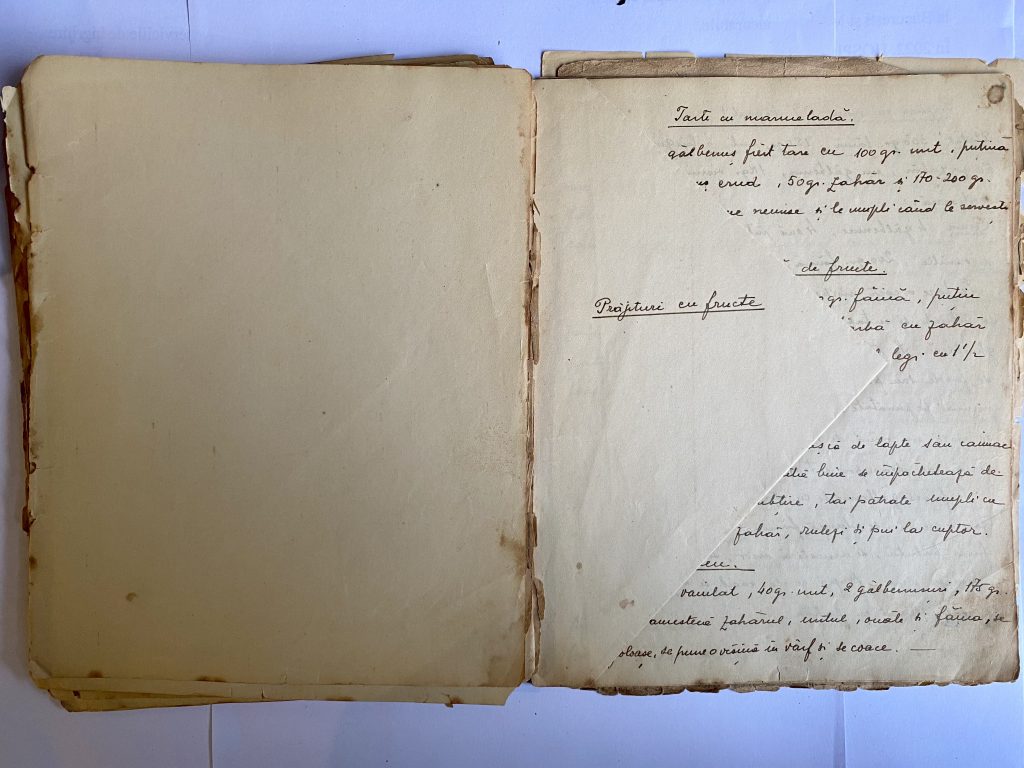 Tarte cu marmeladă.
gălbenuș fiert tare cu 100 gr. unt, puțină
crud, 50 gr. zahăr și 170-200 gr.
neunse și le umpli când le servești
de fructe.
Prăjituri cu fructe
gr. făină, puțin
cu zahăr
legi cu 1 1/2
de lapte sau caimac
bine se împachetează de
tai pătrate umpli cu
zahăr, rulezi și pui la cuptor.
vanilat, 40 gr. unt, 2 gălbenușuri, 175 gr.
amestecă zahărul, untul, ouăle și făina, se
se pune o vișină în vârf și se coace.